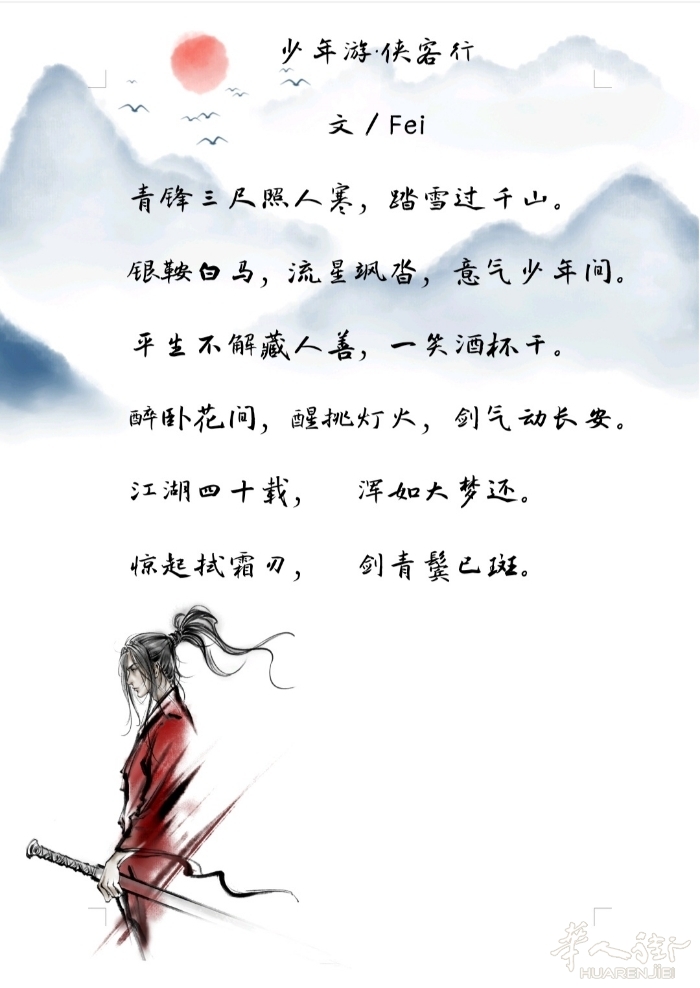 少年游·侠客行
文/Fei
青锋三尺照人寒，踏雪过千山。
银鞍白马，流星飒沓，意气少年间。
平生不解藏人善，一笑酒杯干。
醉卧花间，醒挑灯火，剑气动长安。
江湖四十载， 浑如大梦还。
惊起拭霜刃， 剑青鬓已斑。
华人街
HUARENJIEI